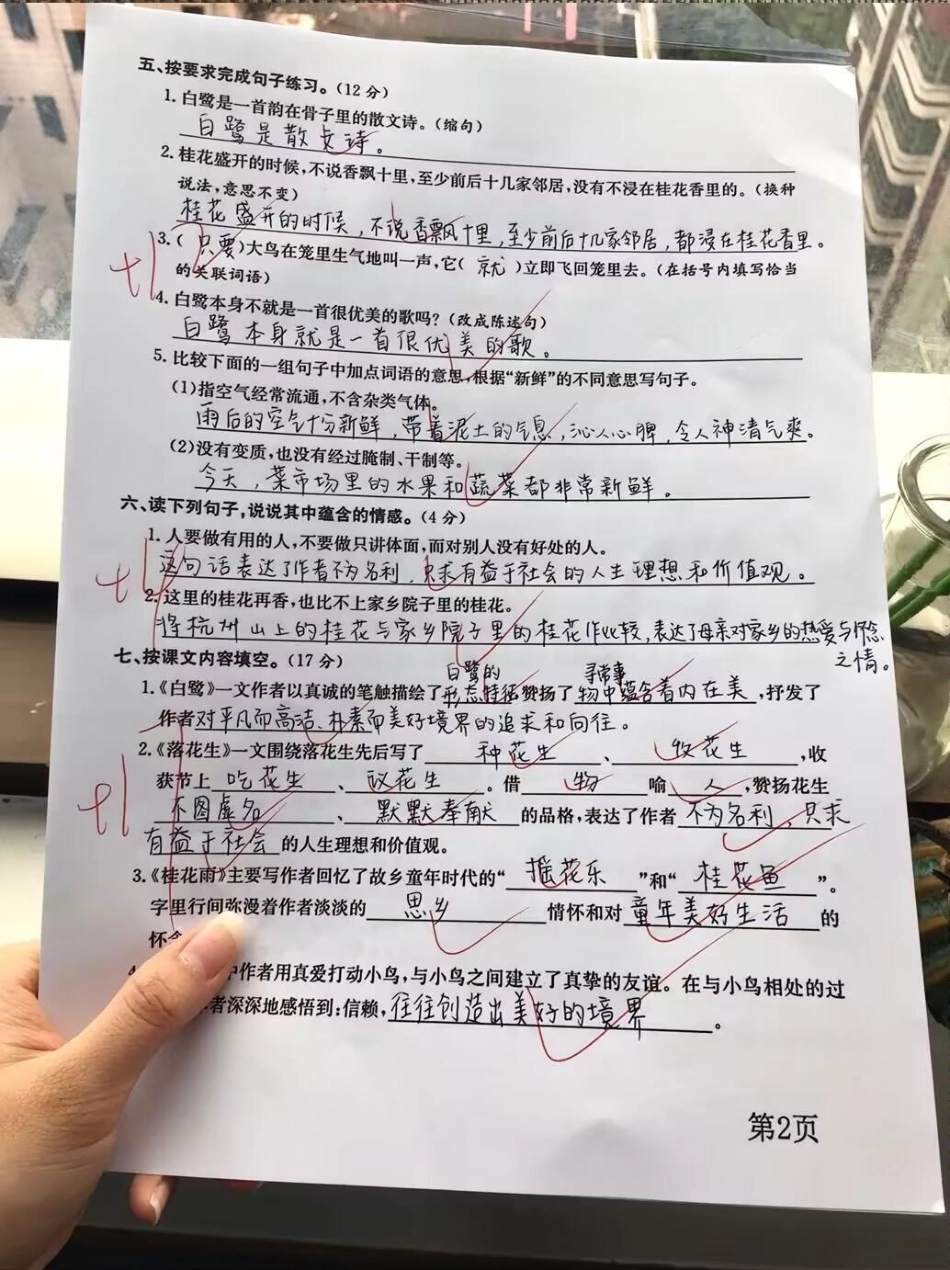 五、按要求完成句子练习。(12分)
1.白鹭是一首韵在骨子里的散文诗。(缩句)
白鹭是散文诗。
2.桂花盛开的时候,不说香飘十里,至少前后十几家邻居,没有不浸在桂花香里的。(换种
说法,意思不变)
桂花盛开的时候,不说香飘十里,至少前后十几家邻居,都浸在桂花香里。
3.( 只要 )大鸟在笼里生气地叫一声,它( 就 )立即飞回笼里去。(在括号内填写恰当
的关联词语)
4.白鹭本身不就是一首很优美的歌吗?(改成陈述句)
白鹭本身就是一首很优美的歌。
5.比较下面的一组句子中加点词语的意思,根据“新鲜”的不同意思写句子。
(1)指空气经常流通,不含杂类气体。
雨后的空气十分新鲜,带着泥土的气息,沁人心脾,令人神清气爽。
(2)没有变质,也没有经过腌制、干制等。
今天,菜市场里的水果和蔬菜都非常新鲜。
六、读下列句子,说说其中蕴含的情感。(4分)
1.人要做有用的人,不要做只讲体面,而对别人没有好处的人。
这句话表达了作者不为名利,只求有益于社会的人生理想和价值观。
2.这里的桂花再香,也比不上家乡院子里的桂花。
将杭州山上的桂花与家乡院子里的桂花作比较,表达了母亲对家乡的热爱与怀念
之情。
七、按课文内容填空。(17分)
白鹭的 寻常事
1.《白鹭》一文作者以真诚的笔触描绘了形态特征赞扬了物中蕴含着内在美,抒发了
作者对平凡而高洁、朴素而美好境界的追求和向往。
2.《落花生》一文围绕落花生先后写了 种花生 、 收花生 ,收
获节上 吃花生 、 议花生 。借 物 喻 人 ,赞扬花生
不图虚名 、 默默奉献 的品格,表达了作者 不为名利,只求
有益于社会 的人生理想和价值观。
3.《桂花雨》主要写作者回忆了故乡童年时代的“ 摇花乐 ”和“ 桂花鱼 ”。
字里行间弥漫着作者淡淡的 思乡 情怀和对 童年美好生活 的
怀
作者用真爱打动小鸟,与小鸟之间建立了真挚的友谊。在与小鸟相处的过
者深深地感悟到:信赖,往往创造出美好的境界。
第2页
+1
+1
+1